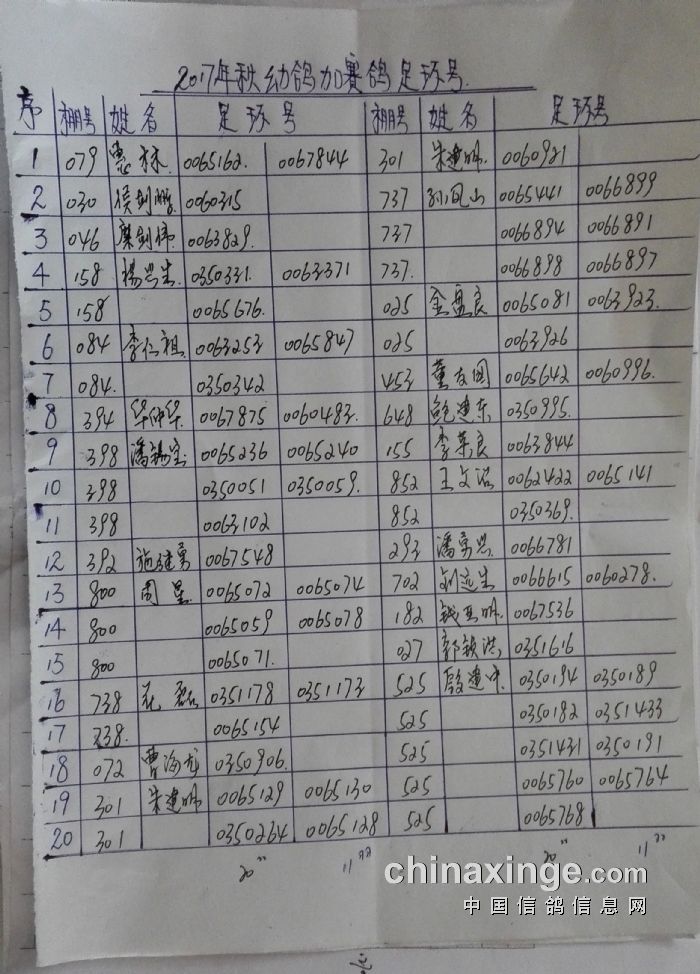 2017年秋幼鸽加赛鸽足环号
序 棚号 姓名 足环号 棚号 姓名 足环号
1 079 惠林 0065162 0067844 301 朱建明 0060921
2 030 侯剑鹏 0060315 737 孙凤山 0065441 0066899
3 046 剑伟 0063829 737 0066894 0066891
4 158 杨兴生 0350331 0063371 737 0066898 0066897
5 158 0065676 025 金盘良 0065081 0063923
6 084 李仁祖 0063253 0065847 025 0063926
7 084 0350342 453 董友国 0065642 0060996
8 394 华仲华 0067875 0060483 648 鲍建东 0350995
9 398 潘锡宝 0065236 0065240 155 李荣良 0063844
10 398 0350051 0350059 852 王文 0062422 0065141
11 398 0063102 852 0350369
12 392 施建勇 0067548 293 潘 0066781
13 800 周星 0065072 0065074 702 刘远生 0066615 0060278
14 800 0065059 0065078 182 钱 明 0067536
15 800 0065071 027 郭锁洪 0351616
16 738 花磊 0351178 0351173 525 殷建中 0350194 0350189
17 738 0065154 525 0350182 0351433
18 072 曹海龙 0350906 525 0351431 0350191
19 301 朱建明 0065129 0065130 525 0065760 0065764
20 301 0350264 0065128 525 0065768
20" 11" 20" 11"
chinaxinge.com
中国信鸽信息网